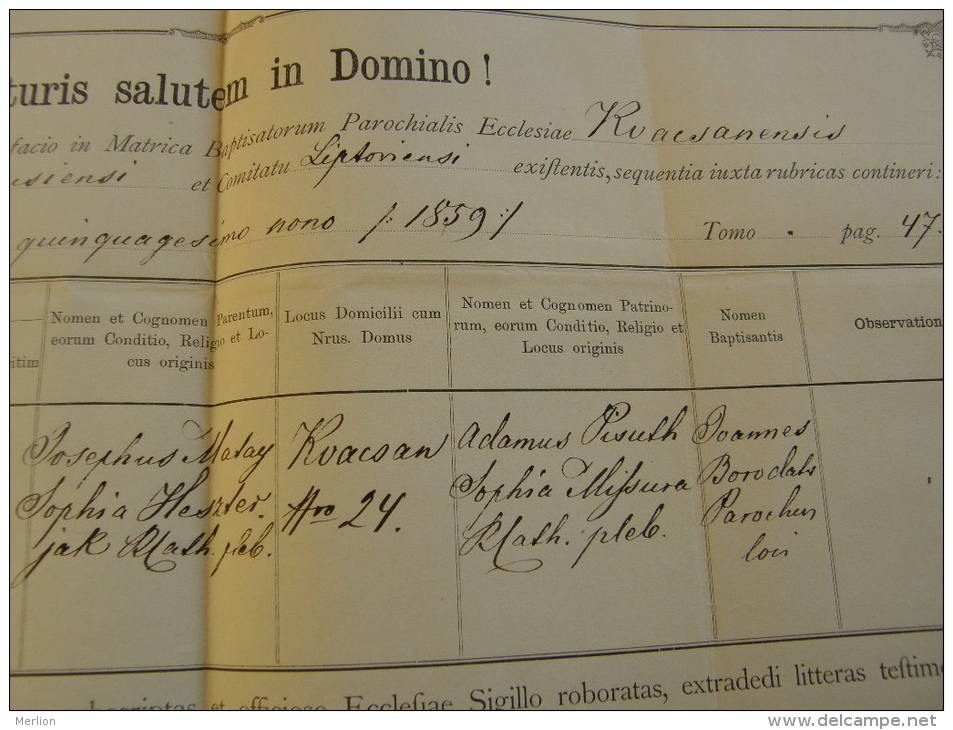 turis salutem in Domino!
facio in Matrica Baptisatorum Parochialis Ecclesiae Kvacsanensis
siensi et Comitatu Liptoviensi exiſtentis, sequentia iuxta rubricas contineri:
quinquagesimo nono /: 1859 :/ Tomo . pag. 47.
itim
Nomen et Cognomen Parentum,
eorum Conditio, Religio et Lo-
cus originis
Locus Domicilii cum
Nrus. Domus
Nomen et Cognomen Patrino-
rum, eorum Conditio, Religio et
Locus originis
Nomen
Baptisantis
Observation
Josephus Matay
Sophia Heszter.
jak Rlath. pleb.
Kvacsan
Nro 24.
Adamus Pisuth
Sophia Miſsura
Rlath. pleb.
Joannes
Borodats
Parochus
loci
et officioso Eccleſiae Sigillo roboratas, extradedi litteras teſtimo
Merlion
www.delcampe.net